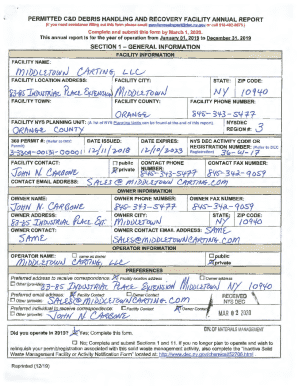 PERMITTED C&D DEBRIS HANDLING AND RECOVERY FACILITY ANNUAL REPORT
Complete and submit this form by March 1, 2020.
This annual report is for the year of operation from January 01, 2019 to December 31, 2019
SECTION 1 – GENERAL INFORMATION
FACILITY INFORMATION
FACILITY NAME:
MIDDLETOWN CARTING LLC
FACILITY LOCATION ADDRESS: FACILITY CITY: STATE: ZIP CODE:
83-85 INDUSTRIAL PLACE EXTENSION MIDDLETOWN NY 10940
FACILITY TOWN: FACILITY COUNTY: FACILITY PHONE NUMBER:
ORANGE 845-343-5477
FACILITY NYS PLANNING UNIT: (A list of NYS Planning Units can be found at the end of this report). NYSDEC REGION #: 3
ORANGE COUNTY
360 PERMIT #: DATE ISSUED: DATE EXPIRES: NYS DEC ACTIVITY CODE OR REGISTRATION NUMBER:
12/11/2018 12/10/2023
FACILITY CONTACT: public private CONTACT PHONE NUMBER: CONTACT FAX NUMBER:
JOHN N. CARBONE 845-343-5477 845-342-9059
CONTACT EMAIL ADDRESS: SALES@MIDDLETOWNCARTING.COM
OWNER INFORMATION
OWNER NAME: OWNER PHONE NUMBER: OWNER FAX NUMBER:
JOHN N. CARBONE 845-343-5477 845-342-9059
OWNER ADDRESS: OWNER CITY: STATE: ZIP CODE:
83-85 INDUSTRIAL PLACE EXT. MIDDLETOWN NY 10940
OWNER CONTACT: OWNER CONTACT EMAIL ADDRESS: SAME
SAME SALES@MIDDLETOWNCARTING.COM
OPERATOR INFORMATION
OPERATOR NAME: same as owner public
MIDDLETOWN CARTING, LLC private
PREFERENCES
Preferred address to receive correspondence: Facility location address Owner address
Other (provide): 83-85 INDUSTRIAL PLACE EXTENSION MIDDLETOWN NY 10940
Preferred email address: Facility Contact Owner Contact
Other (provide): SALES@MIDDLETOWNCARTING.COM
RECEIVED
NYS DEC
MAR 02 2020
Preferred individual to receive correspondence: Facility Contact Owner Contact
Other (provide): JOHN N CARBONE
DIV. OF MATERIALS MANAGEMENT
Did you operate in 2019? Yes; Complete this form.
No; Complete and submit Sections 1 and 11. If you no longer plan to operate and wish to relinquish your permit/registration associated with this solid waste management activity, also complete the "Inactive Solid Waste Management Facility or Activity Notification Form" located at:
Reprinted (12/19)